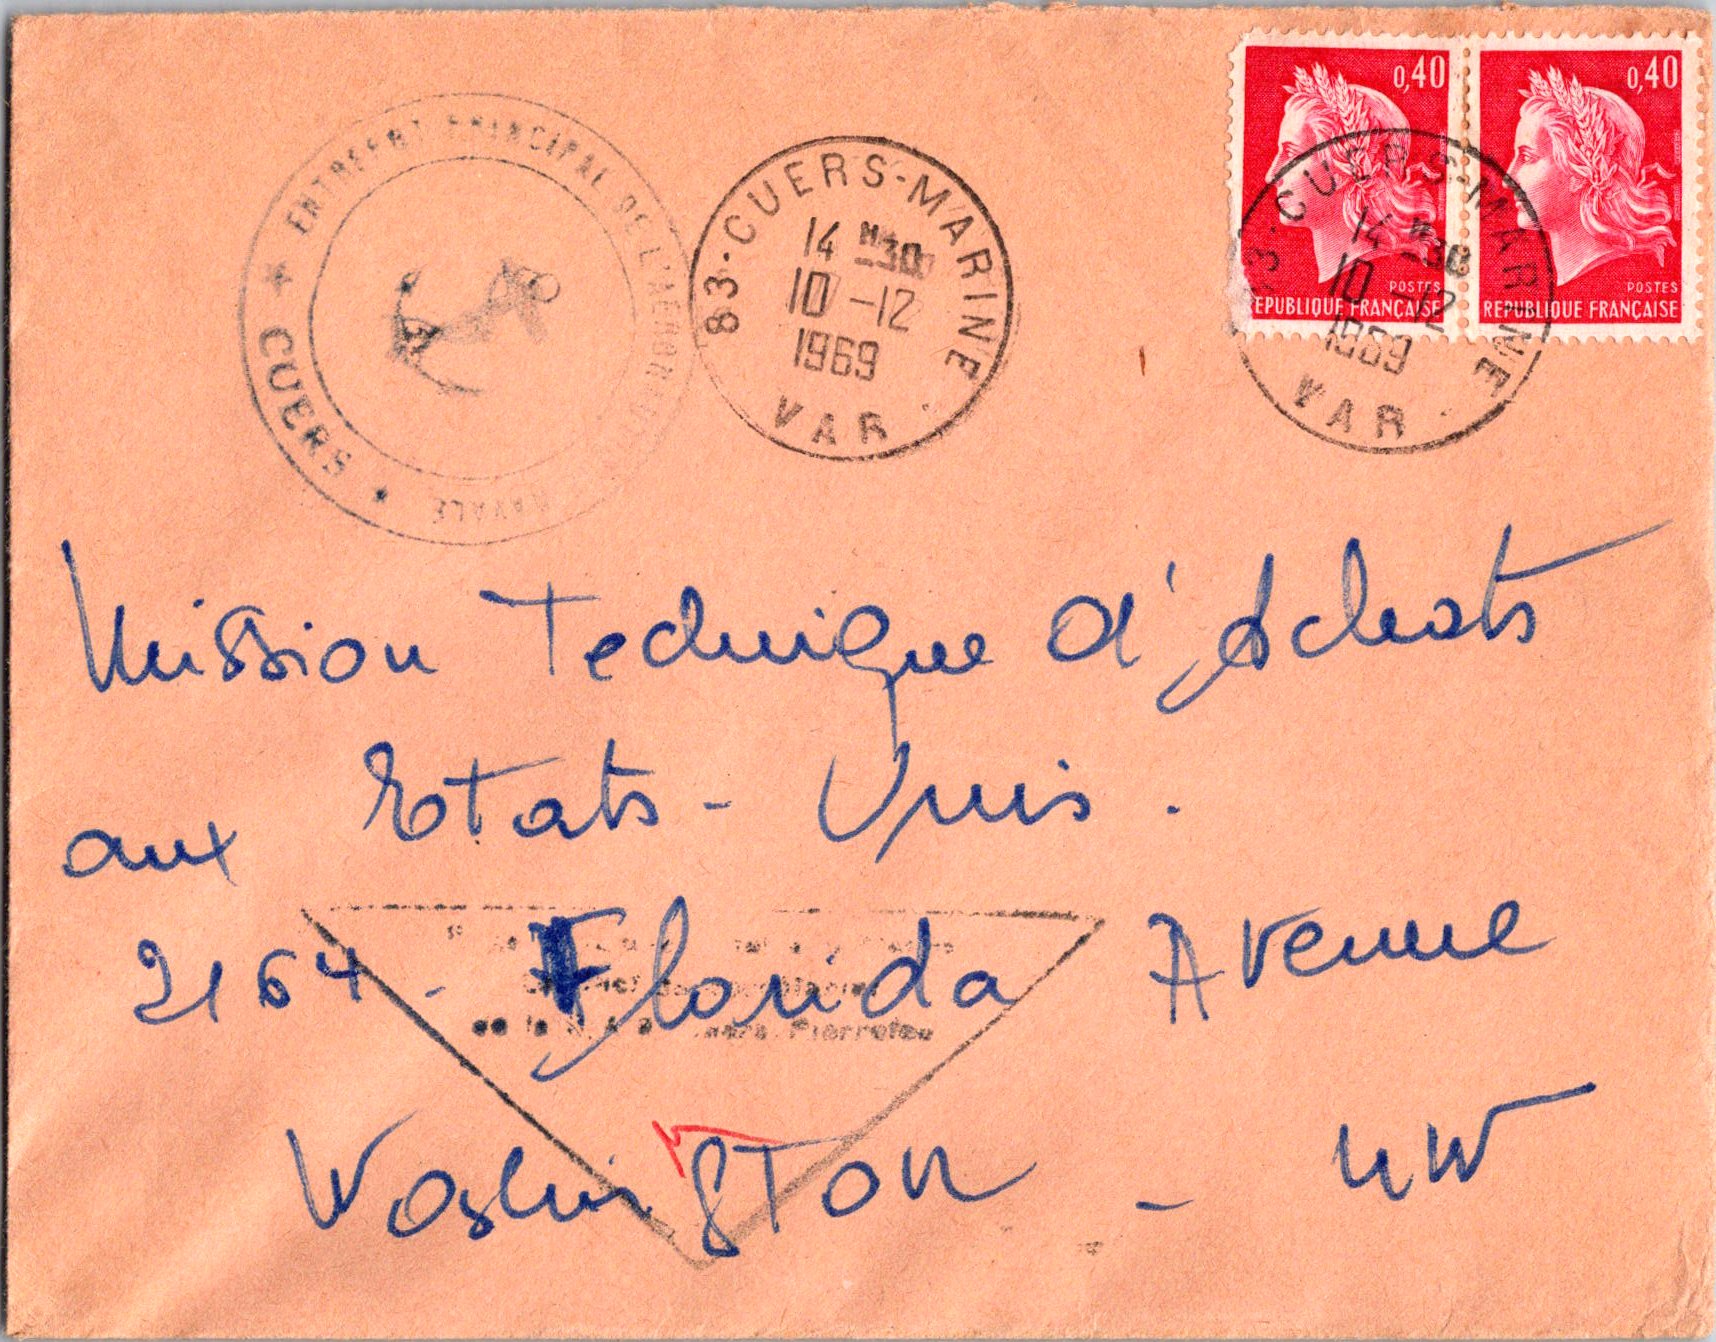 ★ ENTREPOT PRINCIPAL DE L'AERONAUTIQUE NAVALE ★ CUERS
83-CUERS-MARINE
14 H30
10 -12
1969
VAR
0,40
POSTES
REPUBLIQUE FRANÇAISE
0,40
POSTES
REPUBLIQUE FRANÇAISE
83-CUERS-MARINE
14 H30
10 -12
1969
VAR
Mission Technique d'Achats
aux Etats-Unis.
2164 - Florida Avenue
Washington - NW
Pierrefeu